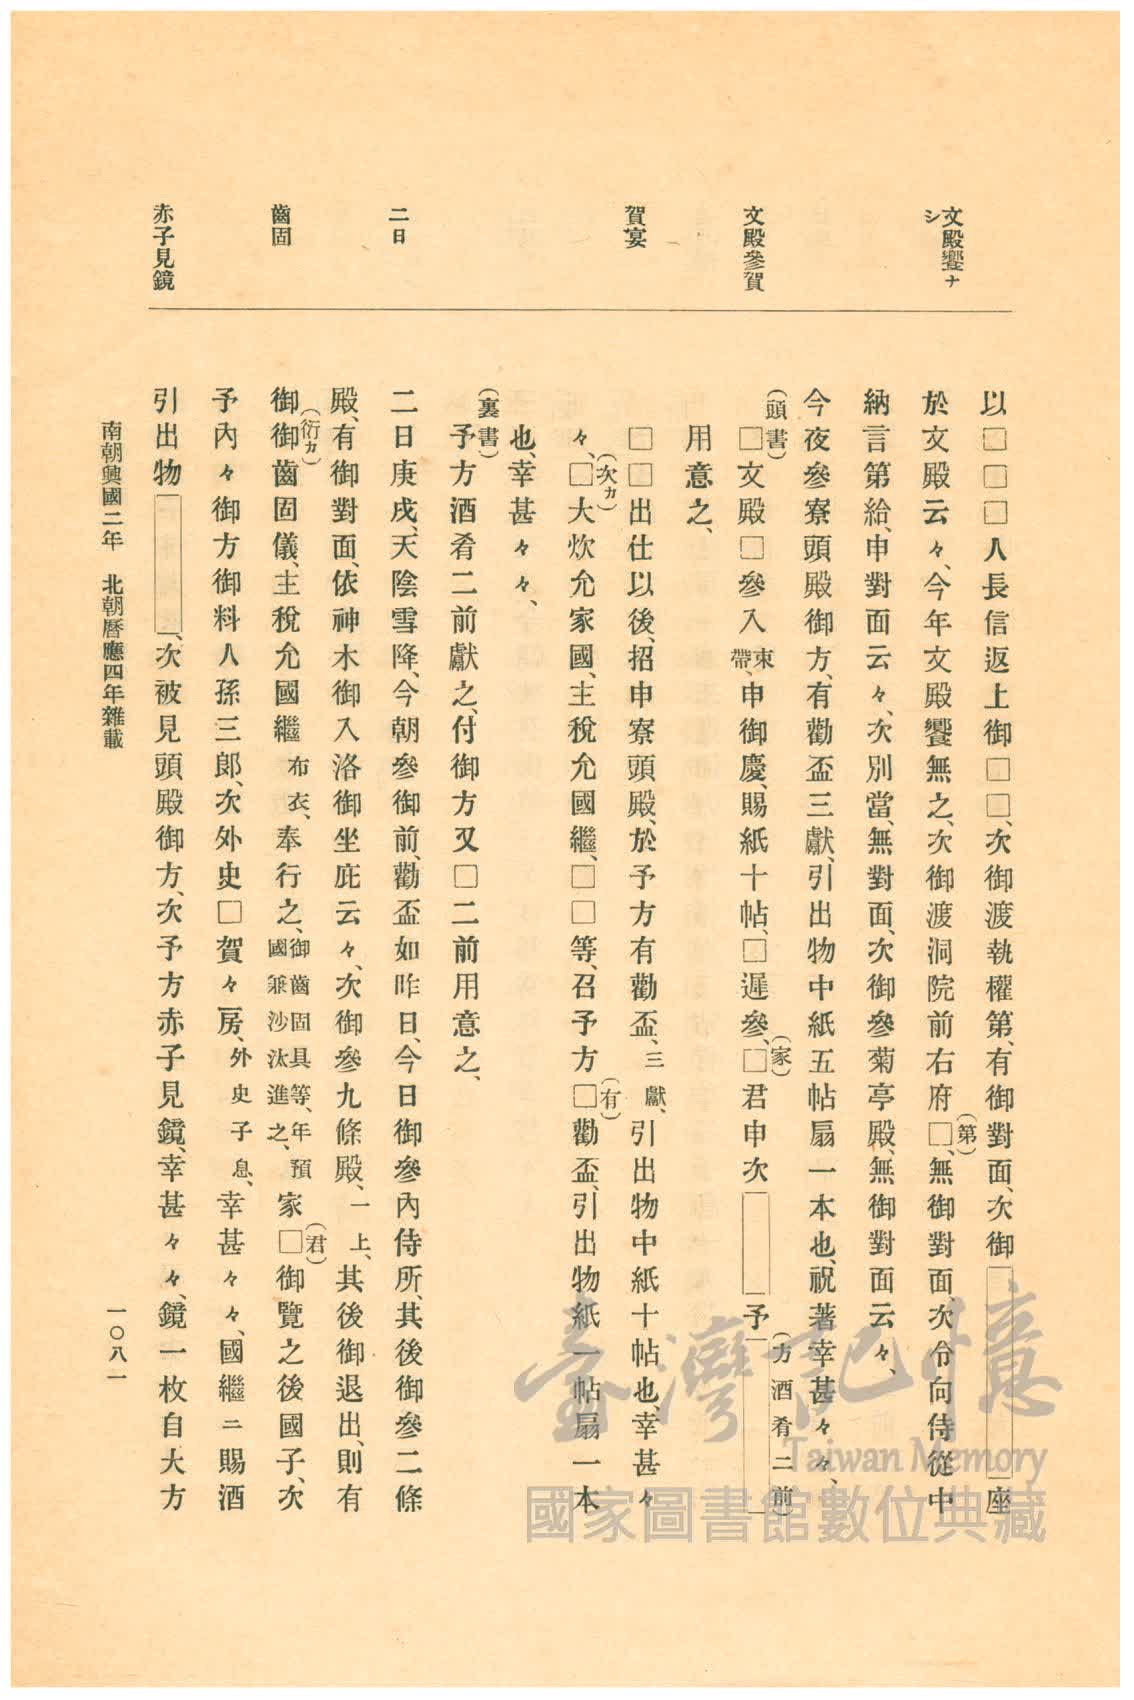 文殿饗ナ
シ
文殿參賀
賀宴
二日
齒固
赤子見鏡
以□□□人長信返上御□□、次御渡執權第、有御對面、次御□座
於文殿云々、今年文殿饗無之、次御渡洞院前右府□(第)、無御對面、次令向侍從中
納言第給、申對面云々、次別當、無對面、次御參菊亭殿、無御對面云々、
今夜參寮頭殿御方、有勸盃三獻、引出物中紙五帖扇一本也、祝著幸甚々々、
(頭書)□文殿□參入束帶、申御慶、賜紙十帖、□遲參、□(家)君申次□予□(方酒肴二前)
用意之、
□□出仕以後、招申寮頭殿、於予方有勸盃、三獻、引出物中紙十帖也、幸甚々
々、□(次カ)大炊允家國、主稅允國繼、□□等、召予方□(有)勸盃、引出物紙一帖扇一本
也、幸甚々々、
(裏書)予方酒肴二前獻之、付御方又□二前用意之、
二日庚戌、天陰雪降、今朝參御前、勸盃如昨日、今日御參內侍所、其後御參二條
殿、有御對面、依神木御入洛御坐庇云々、次御參九條殿、一上、其後御退出、則有
御御(衍カ)齒固儀、主稅允國繼布衣、奉行之、御齒固具等、年預國兼沙汰進之、家□(君)御覽之後國子、次
予內々御方御料人孫三郎、次外史□賀々房、外史子息、幸甚々々、國繼ニ賜酒
引出物□、次被見頭殿御方、次予方赤子見鏡、幸甚々々、鏡一枚自大方
南朝興國二年　北朝曆應四年雜載
一〇八一
臺灣記憶
Taiwan Memory
國家圖書館數位典藏